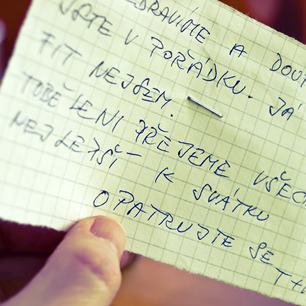 ZDRAVÍME A DOUF
JSTE V POŘÁDKU. JA
FIT NEJSEM.
TOBĚ LENI PŘEJEME VŠEC
NEJLEPŠÍ K SVÁTKU
OPATRUJTE SE